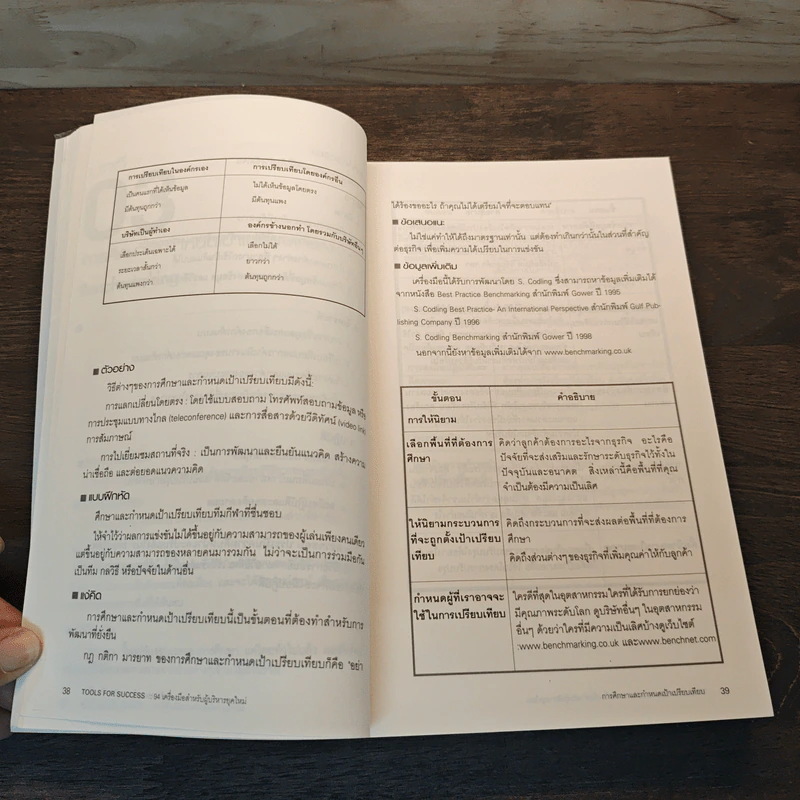 การเปรียบเทียบในองค์กรเอง
การเปรียบเทียบโดยองค์กรอื่น
เป็นคนแรกที่ได้เห็นข้อมูล
ไม่ได้เห็นข้อมูลโดยตรง
มีต้นทุนถูกกว่า
มีต้นทุนแพง
บริษัทเป็นผู้ทำเอง
องค์กรข้างนอกทำ โดยรวมกับบริษัทอื่นๆ
เลือกประเด็นเฉพาะได้
เลือกไม่ได้
ระยะเวลาสั้นกว่า
ยาวกว่า
ต้นทุนแพงกว่า
ต้นทุนถูกกว่า
■ ตัวอย่าง
วิธีต่างๆของการศึกษาและกำหนดเป้าเปรียบเทียบมีดังนี้:
การแลกเปลี่ยนโดยตรง : โดยใช้แบบสอบถาม โทรศัพท์สอบถามข้อมูล หรือ
การประชุมแบบทางไกล (teleconference) และการสื่อสารด้วยวีดิทัศน์ (video link)
การสัมภาษณ์
การไปเยี่ยมชมสถานที่จริง : เป็นการพัฒนาและยืนยันแนวคิด สร้างความ
น่าเชื่อถือ และต่อยอดแนวความคิด
■ แบบฝึกหัด
ศึกษาและกำหนดเป้าเปรียบเทียบทีมกีฬาที่ชื่นชอบ
ให้จำไว้ว่าผลการแข่งขันไม่ได้ขึ้นอยู่กับความสามารถของผู้เล่นเพียงคนเดียว
แต่ขึ้นอยู่กับความสามารถของหลายคนมารวมกัน ไม่ว่าจะเป็นการร่วมมือกัน
เป็นทีม กลวิธี หรือปัจจัยในด้านอื่น
■ แง่คิด
การศึกษาและกำหนดเป้าเปรียบเทียบนี้เป็นขั้นตอนที่ต้องทำสำหรับการ
พัฒนาที่ยั่งยืน
กฎ กติกา มารยาท ของการศึกษาและกำหนดเป้าเปรียบเทียบก็คือ "อย่า
38 TOOLS FOR SUCCESS : 94 เครื่องมือสำหรับผู้บริหารยุคใหม่
ได้ร้องขออะไร ถ้าคุณไม่ได้เตรียมใจที่จะตอบแทน"
■ ข้อเสนอแนะ
ไม่ใช่แค่ทำให้ได้ถึงมาตรฐานเท่านั้น แต่ต้องทำเกินกว่านั้นในส่วนที่สำคัญ
ต่อธุรกิจ เพื่อเพิ่มความได้เปรียบในการแข่งขัน
■ ข้อมูลเพิ่มเติม
เครื่องมือนี้ได้รับการพัฒนาโดย S. Codling ซึ่งสามารถหาข้อมูลเพิ่มเติมได้
จากหนังสือ Best Practice Benchmarking สำนักพิมพ์ Gower ปี 1995
S. Codling Best Practice- An International Perspective สำนักพิมพ์ Gulf Pub-
lishing Company ปี 1996
S. Codling Benchmarking สำนักพิมพ์ Gower ปี 1998
นอกจากนี้ยังหาข้อมูลเพิ่มเติมได้จาก www.benchmarking.co.uk
ขั้นตอน
คำอธิบาย
การให้นิยาม
เลือกพื้นที่ที่ต้องการ
ศึกษา
คิดว่าลูกค้าต้องการอะไรจากธุรกิจ อะไรคือ
ปัจจัยที่จะส่งเสริมและรักษาระดับธุรกิจไว้ทั้งใน
ปัจจุบันและอนาคต สิ่งเหล่านี้คือพื้นที่ที่คุณ
จำเป็นต้องมีความเป็นเลิศ
ให้นิยามกระบวนการ
ที่จะถูกตั้งเป้าเปรียบ
เทียบ
คิดถึงกระบวนการที่จะส่งผลต่อพื้นที่ที่ต้องการ
ศึกษา
คิดถึงส่วนต่างๆของธุรกิจที่เพิ่มคุณค่าให้กับลูกค้า
กำหนดผู้ที่เราอาจจะ
ใช้ในการเปรียบเทียบ
ใครดีที่สุดในอุตสาหกรรมใครที่ได้รับการยกย่องว่า
มีคุณภาพระดับโลก ดูบริษัทอื่นๆ ในอุตสาหกรรม
อื่นๆ ด้วยว่าใครที่มีความเป็นเลิศบ้างดูเว็บไซต์
:www.benchmarking.co.uk และwww.benchnet.com
การศึกษาและกำหนดเป้าเปรียบเทียบ 39